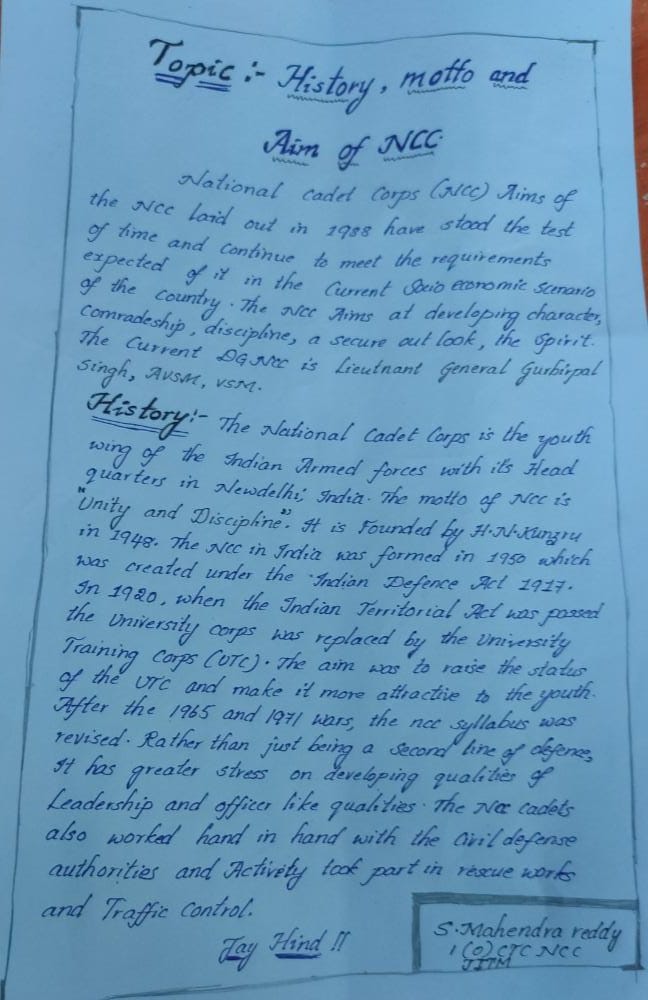 Topic :- History, motto and
Aim of NCC
National Cadet Corps (NCC) Aims of
the NCC laid out in 1988 have stood the test
of time and continue to meet the requirements
expected of it in the Current Socio economic Scenario
of the country. The NCC Aims at developing character,
Comradeship, discipline, a secure out look, the Spirit.
The Current DG NCC is Lieutnant General Gurbirpal
Singh, AVSM, VSM.
History:- The National Cadet Corps is the youth
wing of the Indian Armed forces with its Head
quarters in Newdelhi, India. The motto of NCC is
"Unity and Discipline". It is Founded by H.N.Kunzru
in 1948. The NCC in India was formed in 1950 which
was created under the Indian Defence Act 1917.
In 1920, when the Indian Territorial Act was passed
the University corps was replaced by the University
Training Corps (UTC). The aim was to raise the status
of the UTC and make it more attractive to the youth.
After the 1965 and 1971 wars, the ncc syllabus was
revised. Rather than just being a second line of defence,
It has greater stress on developing qualities of
Leadership and officer like qualities. The Ncc cadets
also worked hand in hand with the Civil defense
authorities and Activety took part in rescue works
and Traffic Control.
Jay Hind !!
S.Mahendra reddy
1(O) CTC NCC